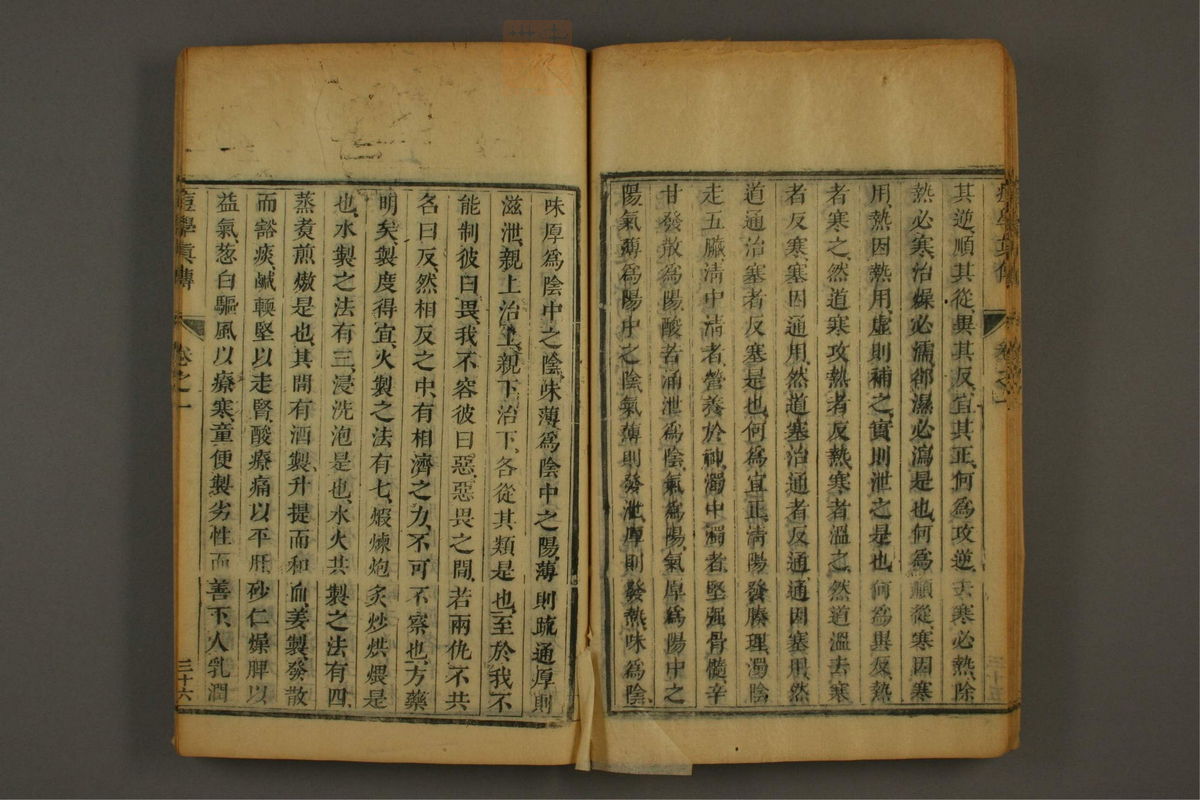 其逆、順其從、異其反、宜其正、何爲攻逆、去寒必熱、除
熱必寒、治燥必濡、卻濕必瀉是也、何爲順從、寒因寒
用、熱因熱用、虛則補之、實則泄之是也、何爲異反、熱
者寒之、然道寒攻熱者反熱、寒者溫之、然道溫去寒
者反寒、塞因通用、然道塞治通者反通、通因塞用、然
道通治塞者反塞是也、何爲宜正、淸陽發腠理、濁陰
走五臟、淸中淸者、營養於神、濁中濁者、堅强骨髓、辛
甘發散爲陽、酸苦涌泄爲陰、氣爲陽、氣厚爲陽中之
陽、氣薄爲陽中之陰、氣薄則發泄、厚則發熱、味爲陰、
味厚爲陰中之陰、味薄爲陰中之陽、薄則疏通、厚則
滋泄、親上治上、親下治下、各從其類是也、至於我不
能制彼曰畏、我不容彼曰惡、惡畏之間、若兩仇不共
名曰反、然相反之中、有相濟之力、不可不察也、方藥
明矣、製度得宜、火製之法有七、煆煉炮炙炒烘煨是
也、水製之法有三、浸洗泡是也、水火共製之法有四、
蒸煑煎熬是也、其間有酒製、升提而和血、姜製、發散
而豁痰、鹹輭堅以走腎、酸療痛以平肝、砂仁燥脾以
益氣、葱白驅風以療寒、童便製劣性而善下、人乳潤
痘學眞傳
卷之一
三十六